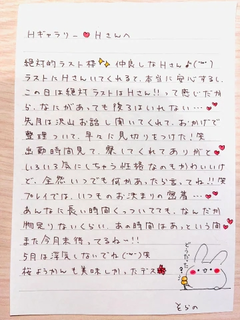 Hギャラリー Hさんへ
絶対的ラスト様 仲良しなHさん♪(˘︶˘)
ラストにHさんいてくれると、本当に安心するし、
この日は絶対ラストはHさん!!って感じだか
ら、なにがあっても帰るはいれない…
先月は沢山お話し聞いてくれて、おかげで
整理ついて、早々に見切りをつけた!!笑
出勤時間見て、察してくれてありがと
いろいろ気にしちゃう性格なのもかわいいけ
ど、全然いつでも何かあったら言ってね!!笑
プレイでは、いつものお決まりの密着…
あんなに長い時間くっついてても、なんだか
物足りないくらい、あの時間はあっという間
また今月末待ってるねー!!
5月は浮気しないでね(˘︶˘)笑
桜ようかんも美味しかったデス
どうだった?
そらの